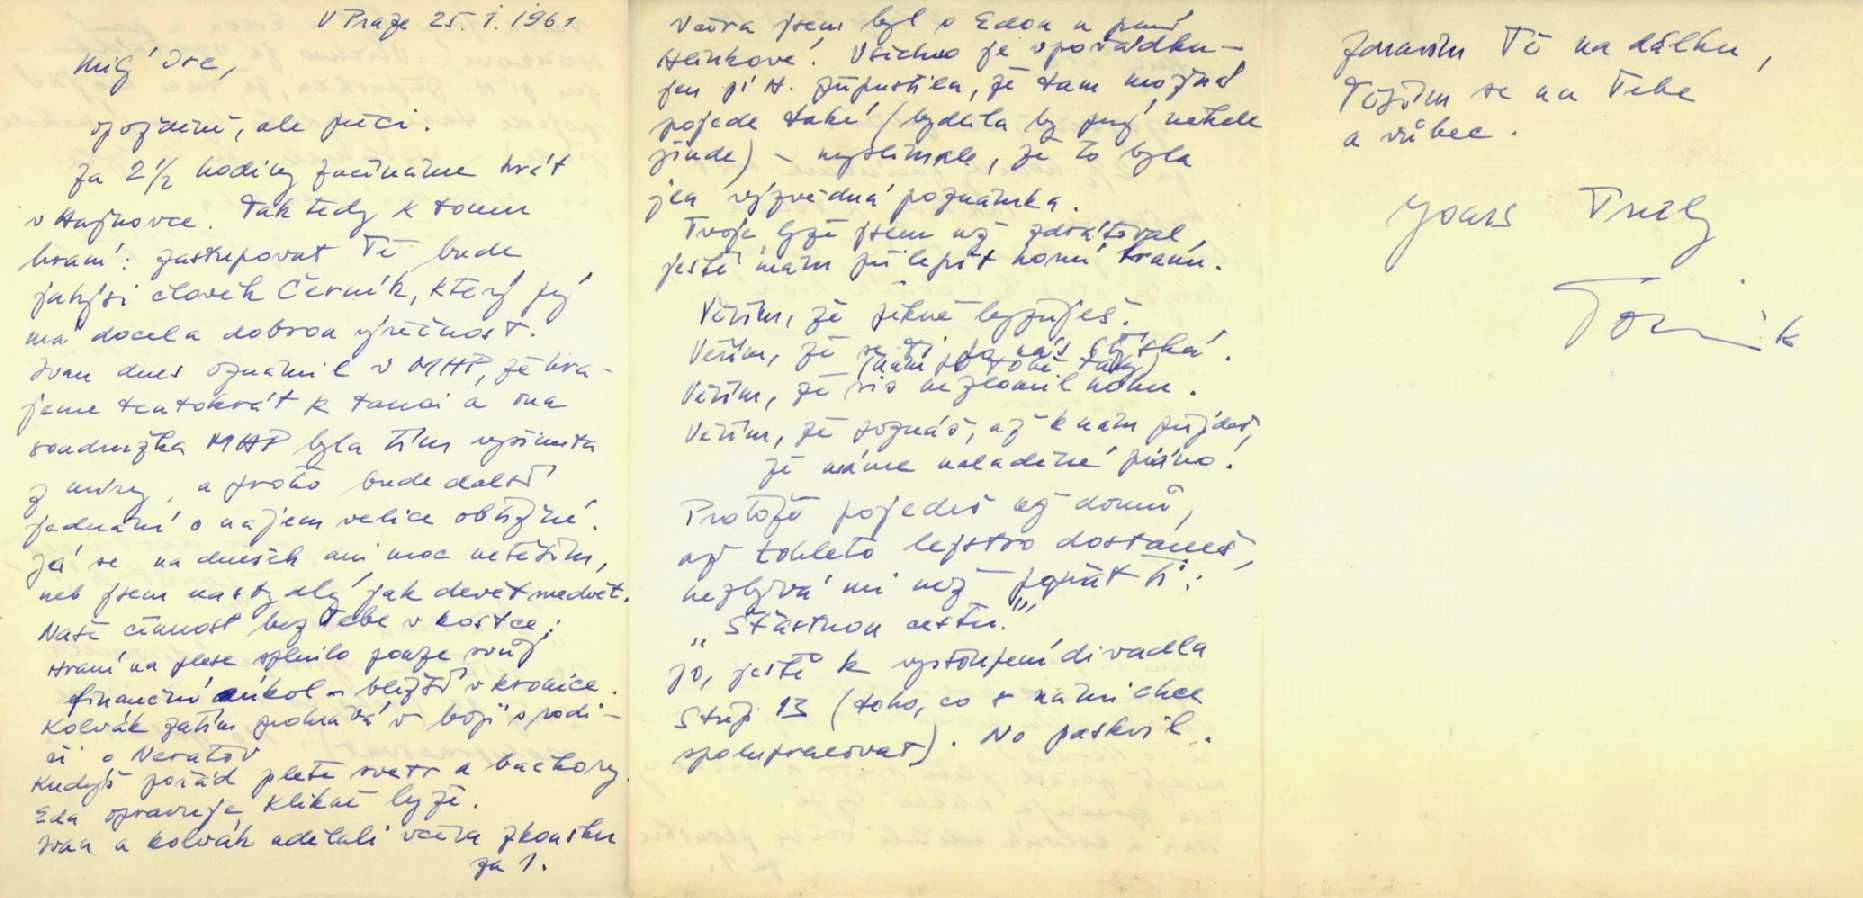 V Praze 25. 1. 1961
Milý Ive,
opožděně, ale přeci.
Za 2 1/2 hodiny začínáme hrát
v Hajnovce. Tak tedy k tomu
hraní: zastupovat Tě bude
jakýsi člověk Černík, který prý
má docela dobrou výřečnost.
Ivan dnes oznámil v MHP, že hra-
jeme tentokrát k tanci a ona
soudružka MHP byla tím vyšinuta
z míry, a proto bude další
jednání o nájem velice obtížné.
Já se na dnešek ani moc netěším,
neb jsem nastydlý jak devět medvěd.
Naše činnost bez Tebe v kostce:
Hraní na plese splnilo pouze svůj
finanční úkol – bližší v kronice.
Kolvák zatím prohrává v boji s rodi-
či o Neratov
Kudyš pořád plete svetr a bačkory.
Eda opravuje Klikaě lyže.
Ivan a Kolvák udělali včera zkoušku
za 1.
Včera jsem byl s Edou u paní
Hlinkové. Všechno je v pořádku –
jen pí H. připustila, že tam možná
pojede také (bydlela by prý někde
jinde) – myslím ale, že to byla
jen výzvědná poznámka.
Tvoje lyže jsem už zdrátoval,
ještě mám přilepit horní hranu.
Věřím, že pěkně lyžuješ.
Věřím, že se ti po nás stýská.
(nám po tobě taky)
Věřím, že sis nezlomil nohu.
Věřím, že poznáš, až k nám přijdeš,
že máme naladěné piáno!
Protože pojedeš už domů,
až tohleto lejstro dostaneš,
nezbývá mi než popřát ti:
„Šťastnou cestu."
Jo, ještě k vystoupení divadla
Stuji 13 (toho, co s námi chce
spolupracovat). No paskvil.
Zdravím Tě na dálku,
Těším se na Tebe
a vůbec.
Yours Truly
Tomík